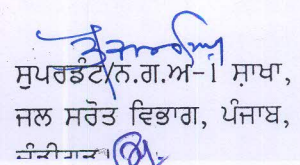 ਸੁਪਰਡੰਟ/ਨ.ਗ.ਅ-1 ਸ਼ਾਖਾ,
ਜਲ ਸਰੋਤ ਵਿਭਾਗ, ਪੰਜਾਬ,
ਚੰਡੀਗੜ੍ਹ।